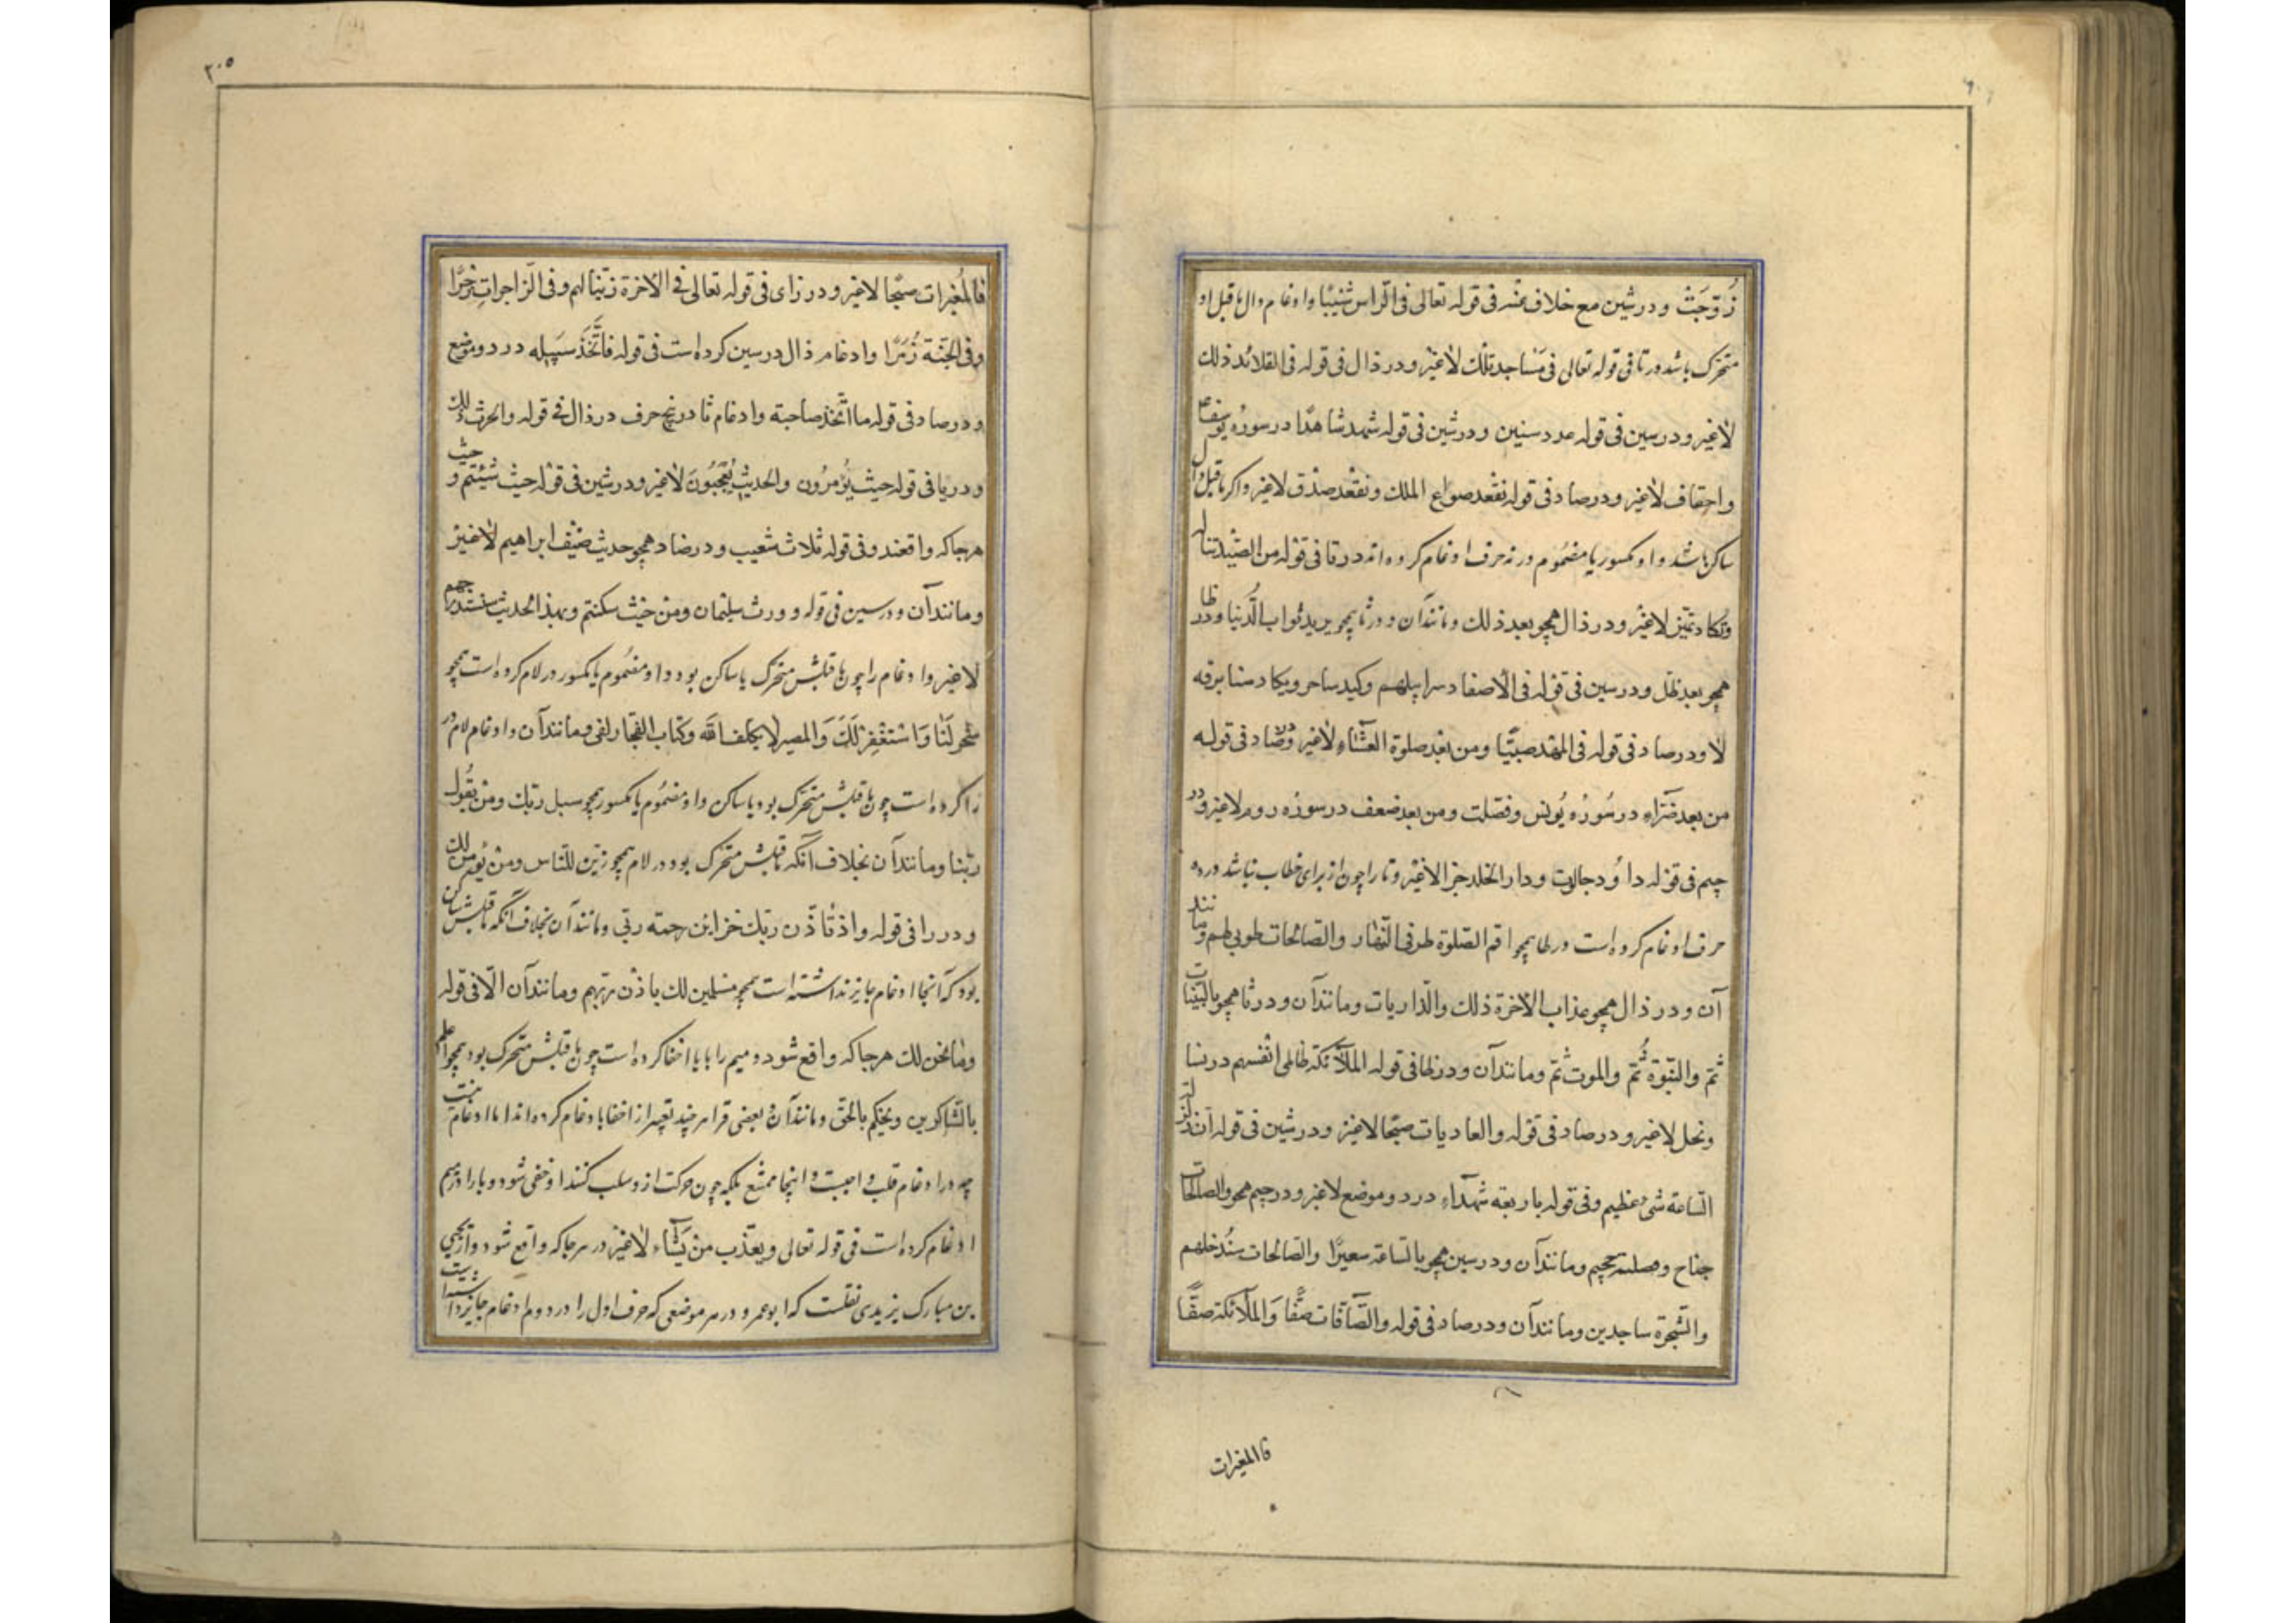 زُوّجَتْ و در شین مع خلاف عنه فی قوله تعالی فی الرّاس شیبًا و ادغام دال ما قبل او
متحرّک باشد در تا فی قوله تعالی فی مساجد تلک لاغیر و در ذال فی قوله فی القلائد ذلک
لاغیر و در سین فی قوله عدد سنین و در شین فی قوله شهد شاهدًا در سوره یوسف
و احقاف لاغیر و در صاد فی قوله نفقد صواع الملک و نقعد صدق لاغیر و اکر ما قبل دال
ساکن باشد و او مکسور یا مضموم در نه حرف ادغام کرده‌اند در تا فی قوله من الصّید تناله
و تکاد تمیّز لاغیر و در ذال همچو بعد ذلک و مانند آن و در ثا همچو یرید ثواب الدّنیا و در ظا
همچو بعد ظلم و در سین فی قوله فی الاصفاد سرابیلهم و کید ساحر و یکاد سنا برقه
لا و در صاد فی قوله فی المهد صبیًّا و من بعد صلوة العشاء لاغیر و در ضاد فی قوله
من بعد ضرّاء در سوره یونس و فصّلت و من بعد ضعف در سوره روم لاغیر و در
جیم فی قوله داود جالوت و دار الخلد جزا لاغیر و تا را چون از برای خطاب نباشد در ده
حرف ادغام کرده است در طا همچو اقم الصّلوة طرفی النّهار و الصّالحات طوبی لهم و مانند
آن و در ذال همچو عذاب الآخرة ذلک و الذّاریات و مانند آن و در ثا همچو بالبیّنات
ثمّ و النّبوّة ثُمّ و الموت ثمّ و مانند آن و در ظا فی قوله الملآئکة ظالمی انفسهم در نسا
و نحل لاغیر و در ضاد فی قوله و العادیات ضبحًا لاغیر و در شین فی قوله انّ زلزلة
السّاعة شیء عظیم و فی قوله باربعة شهدآء در دو موضع لاغیر و در جیم همچو الصالحات
جناح و تصلیة جحیم و مانند آن و در سین همچو بالسّاعة سعیرًا و الصّالحات سنُدخلهم
و السّحرة ساجدین و مانند آن و در صاد فی قوله و الصّآفّات صفًّا و الملآئکة صفًّا
فالمغیرات
۲۰۵
فالمُغیرات صبحًا لاغیر و در زای فی قوله تعالی فی الآخرة زیّنّا لهم و فی الزّاجراتِ زجرًا
و فی الجنّة زُمَرًا و ادغام ذال در سین کرده است فی قوله فاتّخذ سبیله در دو موضع
و در صاد فی قوله ما اتّخذ صاحبة و ادغام ثا در پنج حرف در ذال فی قوله و الحرث ذلک
و در تا فی قوله حیث تؤمرون و الحدیث تعجبون لاغیر و در شین فی قوله حیث شئتم و حیث
هرجا که واقعند و فی قوله ثلاث شعیب و در ضاد همچو حدیث ضیف ابراهیم لاغیر
و مانند آن و در سین فی قوله و ورث سلیمان و من حیث سکنتم و بهذا الحدیث سنستدرجهم
لاغیر و ادغام را چون ما قبلش متحرّک یا ساکن بود و او مضموم یا مکسور در لام کرده است همچو
سخّر لنا و استغفر لک و المصیر لا یکلّف الله و کتاب الفجّار لفی و مانند آن و ادغام لام در
را کرده است چون ما قبلش متحرّک بود یا ساکن و او مضموم یا مکسور همچو سبل ربّک و من یقول
ربّنا و مانند آن بخلاف آنکه ما قبلش متحرّک بود در لام همچو زیّن للنّاس و من یؤمن لک
و در را فی قوله و اذ تاذّن ربّک خزاین رحمة ربّی و مانند آن بخلاف آنکه ما قبلش ساکن
بود که آنجا ادغام جایز نداشته است همچو مسلمین لک باذن ربّهم و مانند آن الّا فی قوله
و ما نحن لک هرجا که واقع شود و میم را با با اخفا کرده است چون ما قبلش متحرّک بود همچو اعلم
بالشّاکرین و یحکم بالحقّ و مانند آن و بعضی قرا هر چند تعبیر از اخفا با دغام کرده‌اند اما ادغام نیست
چه در ادغام قلب واجبست و اینجا ممتنع بلکه چون حرکت از و سلب کنند او خفی شود و با را در میم
ادغام کرده است فی قوله تعالی و یعذّب من یشآء لاغیر در هرجا که واقع شود و از یحیی
بن مبارک یزیدی نقلست که ابو عمرو در هر موضعی که حرف اول را در دوم ادغام جایز داشته است